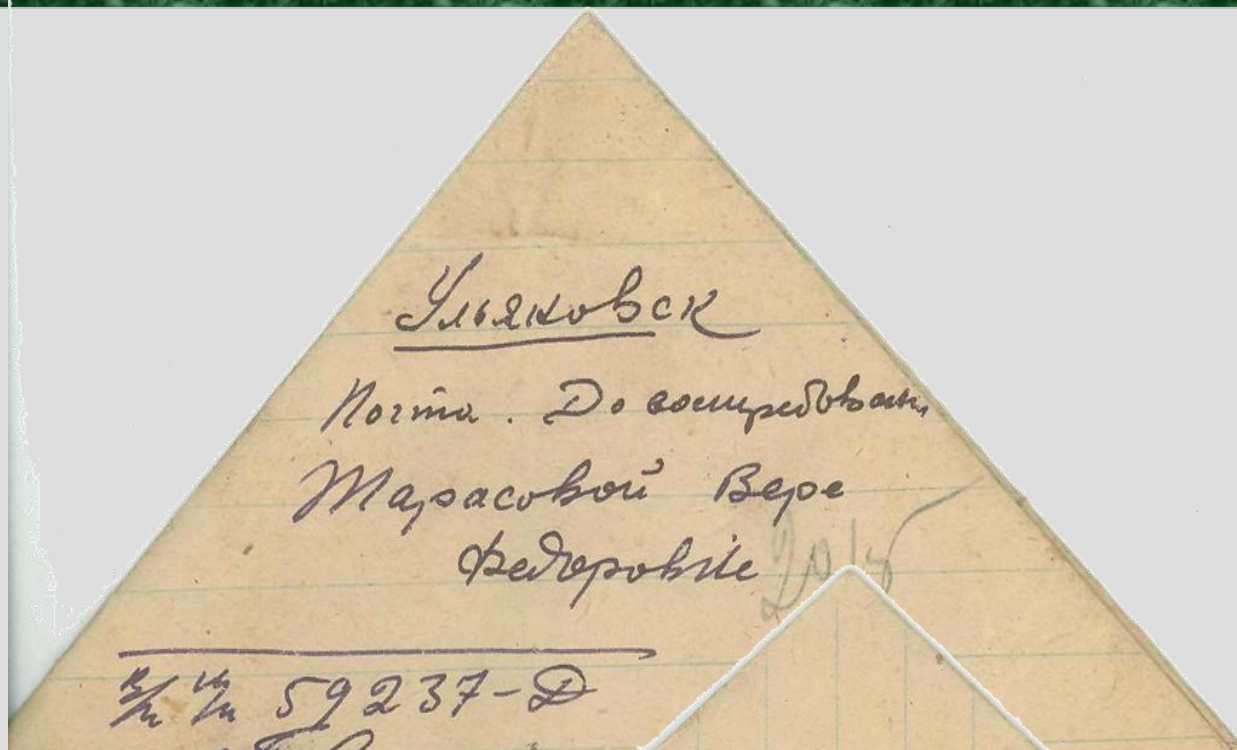 Ульяновск
Почта. До востребован.
Тарасовой Вере
Федоровне
п/п 59237-Д